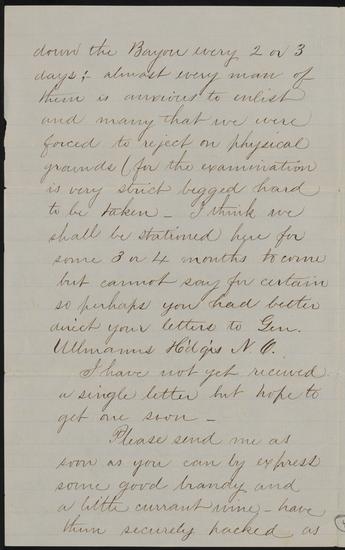 down the Bayou every 2 or 3
days; almost every man of
them is anxious to enlist
and many that we were
forced to reject on physical
grounds (for the examination
is very strict begged hard
to be taken - I think we
shall be stationed here for
some 3 or 4 months to come
but cannot say for certain
so perhaps you had better
direct your letters to Gen.
Ullmanns Hdqrs N.O.
I have not yet received
a single letter but hope to
get one soon -
Please send me as
soon as you can by express
some good brandy and
a little currant wine - have
them securely packed as